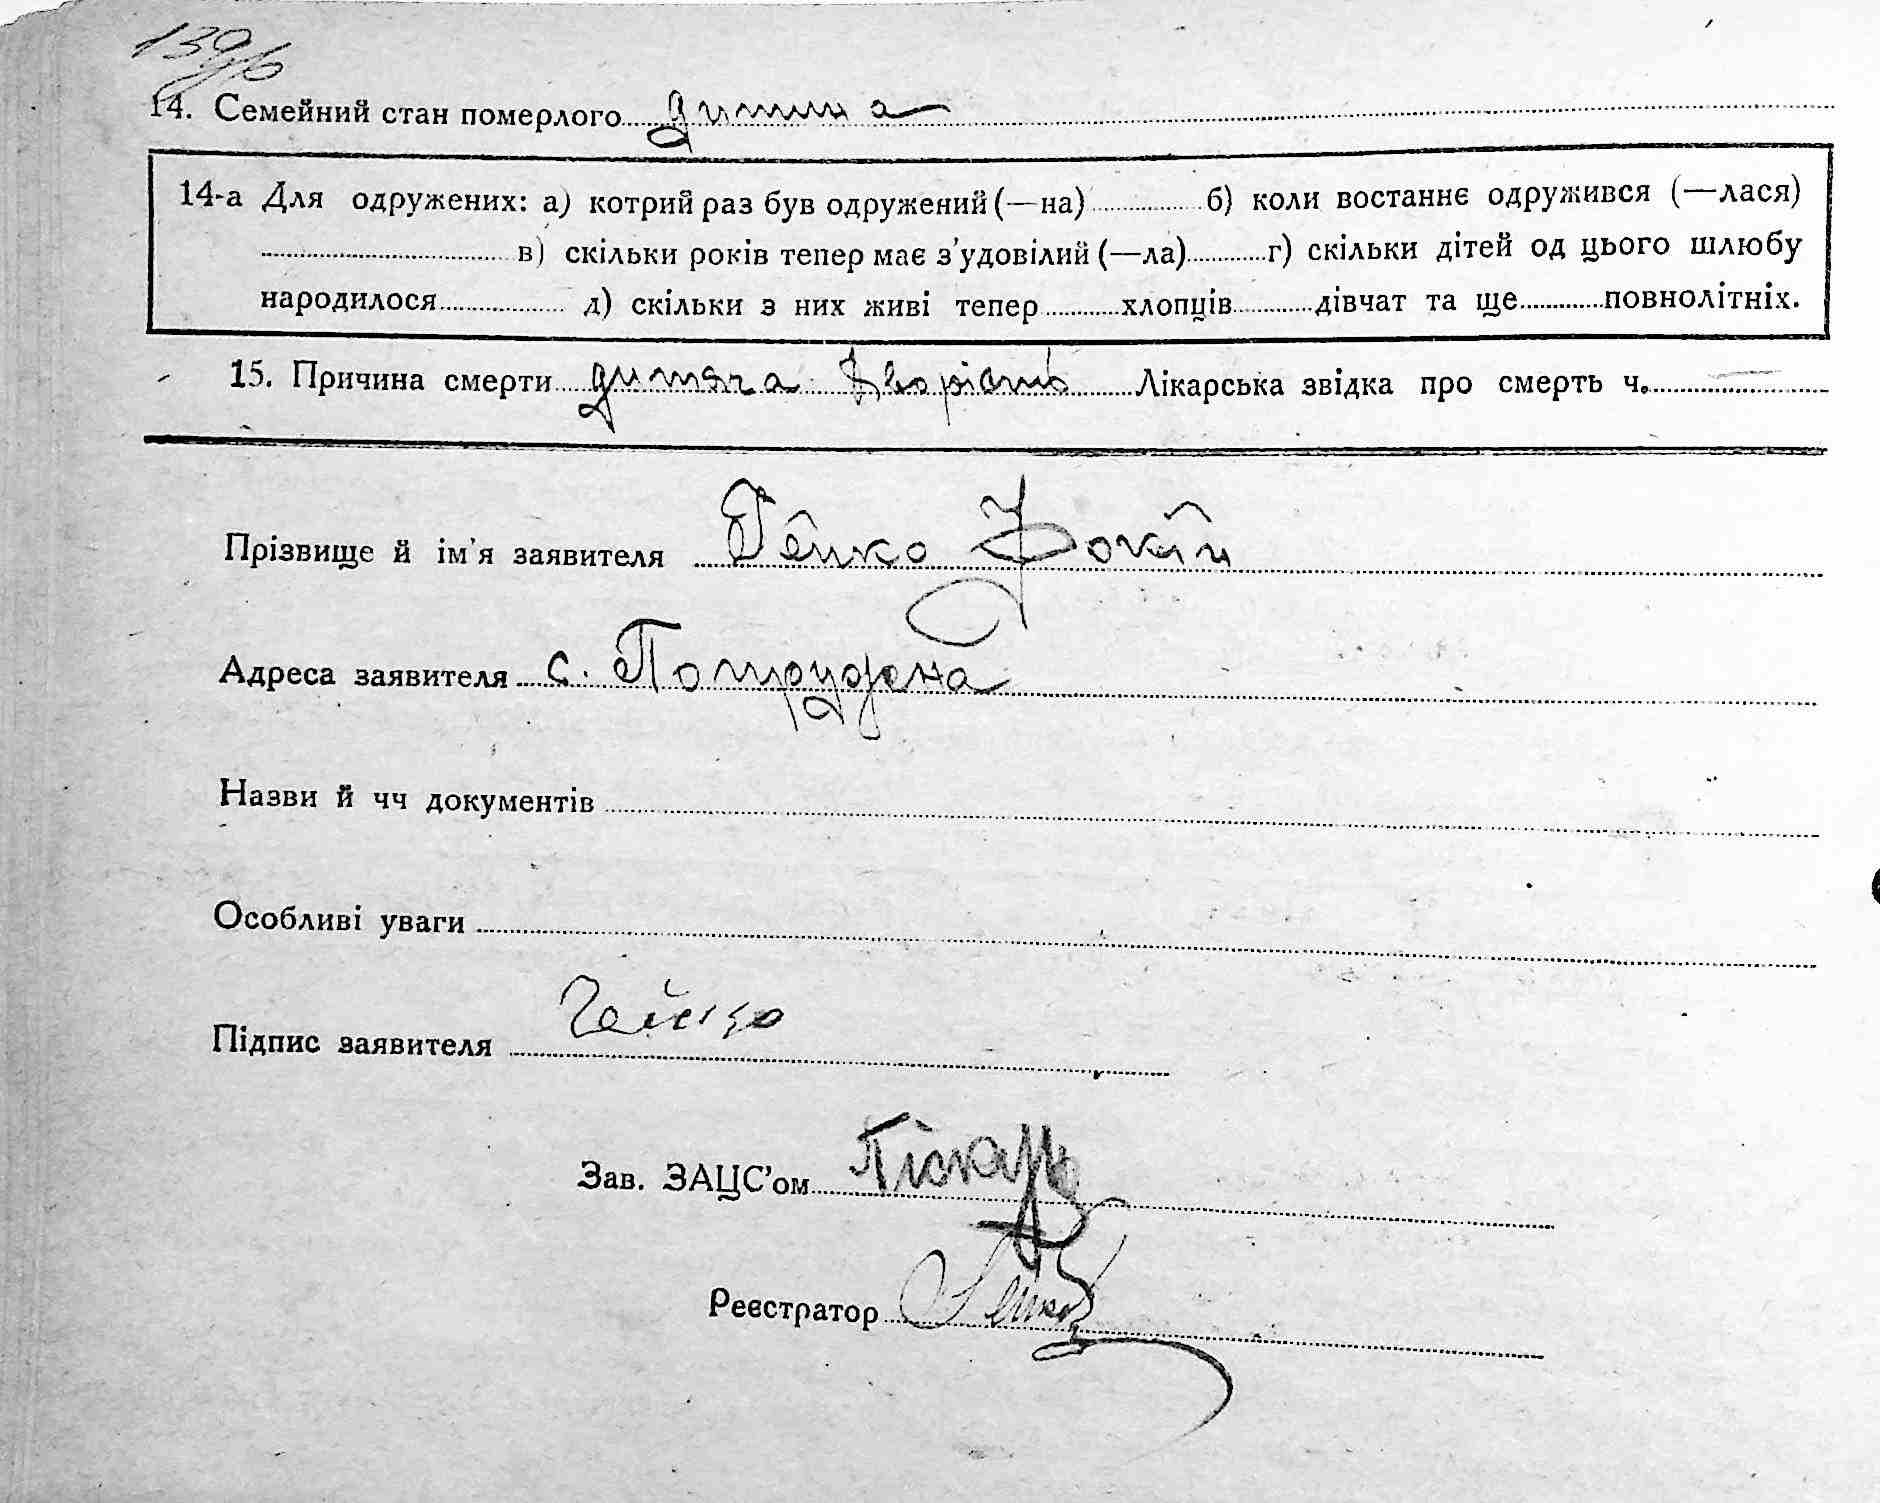 14. Семейний стан померлого дитина
14-а Для одружених: а) котрий раз був одружений (—на) б) коли востаннє одружився (—лася)
в) скільки років тепер має з’удовілий (—ла) г) скільки дітей од цього шлюбу
народилося д) скільки з них живі тепер хлопців дівчат та ще повнолітніх.
15. Причина смерти дитяча хворість Лікарська звідка про смерть ч.
Прізвище й ім’я заявителя Гейко Фокій
Адреса заявителя с.
Назви й чч документів
Особливі уваги
Підпис заявителя
Зав. ЗАЦС’ом
Реєстратор